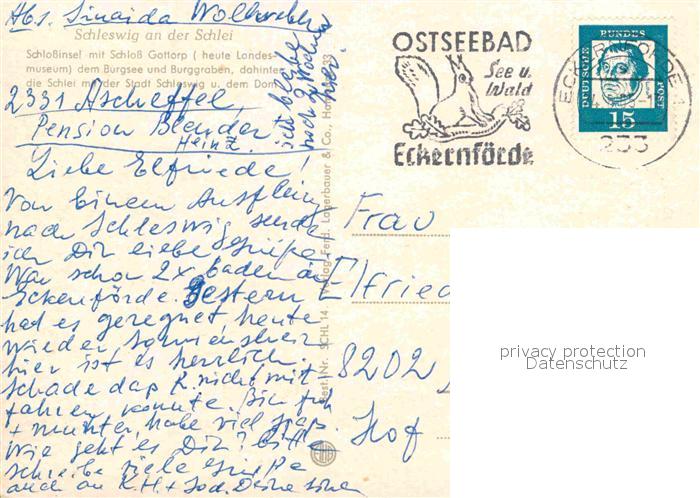 Abs. Sinaida
Schleswig an der Schlei
Schloßinsel mit Schloß Gottorp ( heute Landes-
museum) dem Burgsee und Burggraben, dahinter
die Schlei mit der Stadt Schleswig u. dem Dom
2331 Ascheffel,
Pension Blender
Heinz
ich bleibe
noch 2 Wochen
hier
Liebe Elfriede!
Von einem Ausflug
nach Schleswig sende
ich Dir liebe Grüße.
War schon 2x baden in
Eckenförde. Gestern
hat es geregnet, heute
wieder Sonnenschein
hier ist es herrlich.
Schade daß R. nicht mit
fahren konnte. Bin froh
+ munter, habe viel Spaß.
Wie geht es Dir? Bitte
schreibe viele Grüße
auch an K.H. + Deine
Best. Nr. SCHL 14 Verlag Ferd. Lagerbauer & Co., Hamburg 33
OSTSEEBAD
See u.
Wald
Eckernförde
ECKERNFÖRDE 1
233
DEUTSCHE
BUNDES
POST
15
Frau
Elfriede
8202
Hof
privacy protection
Datenschutz